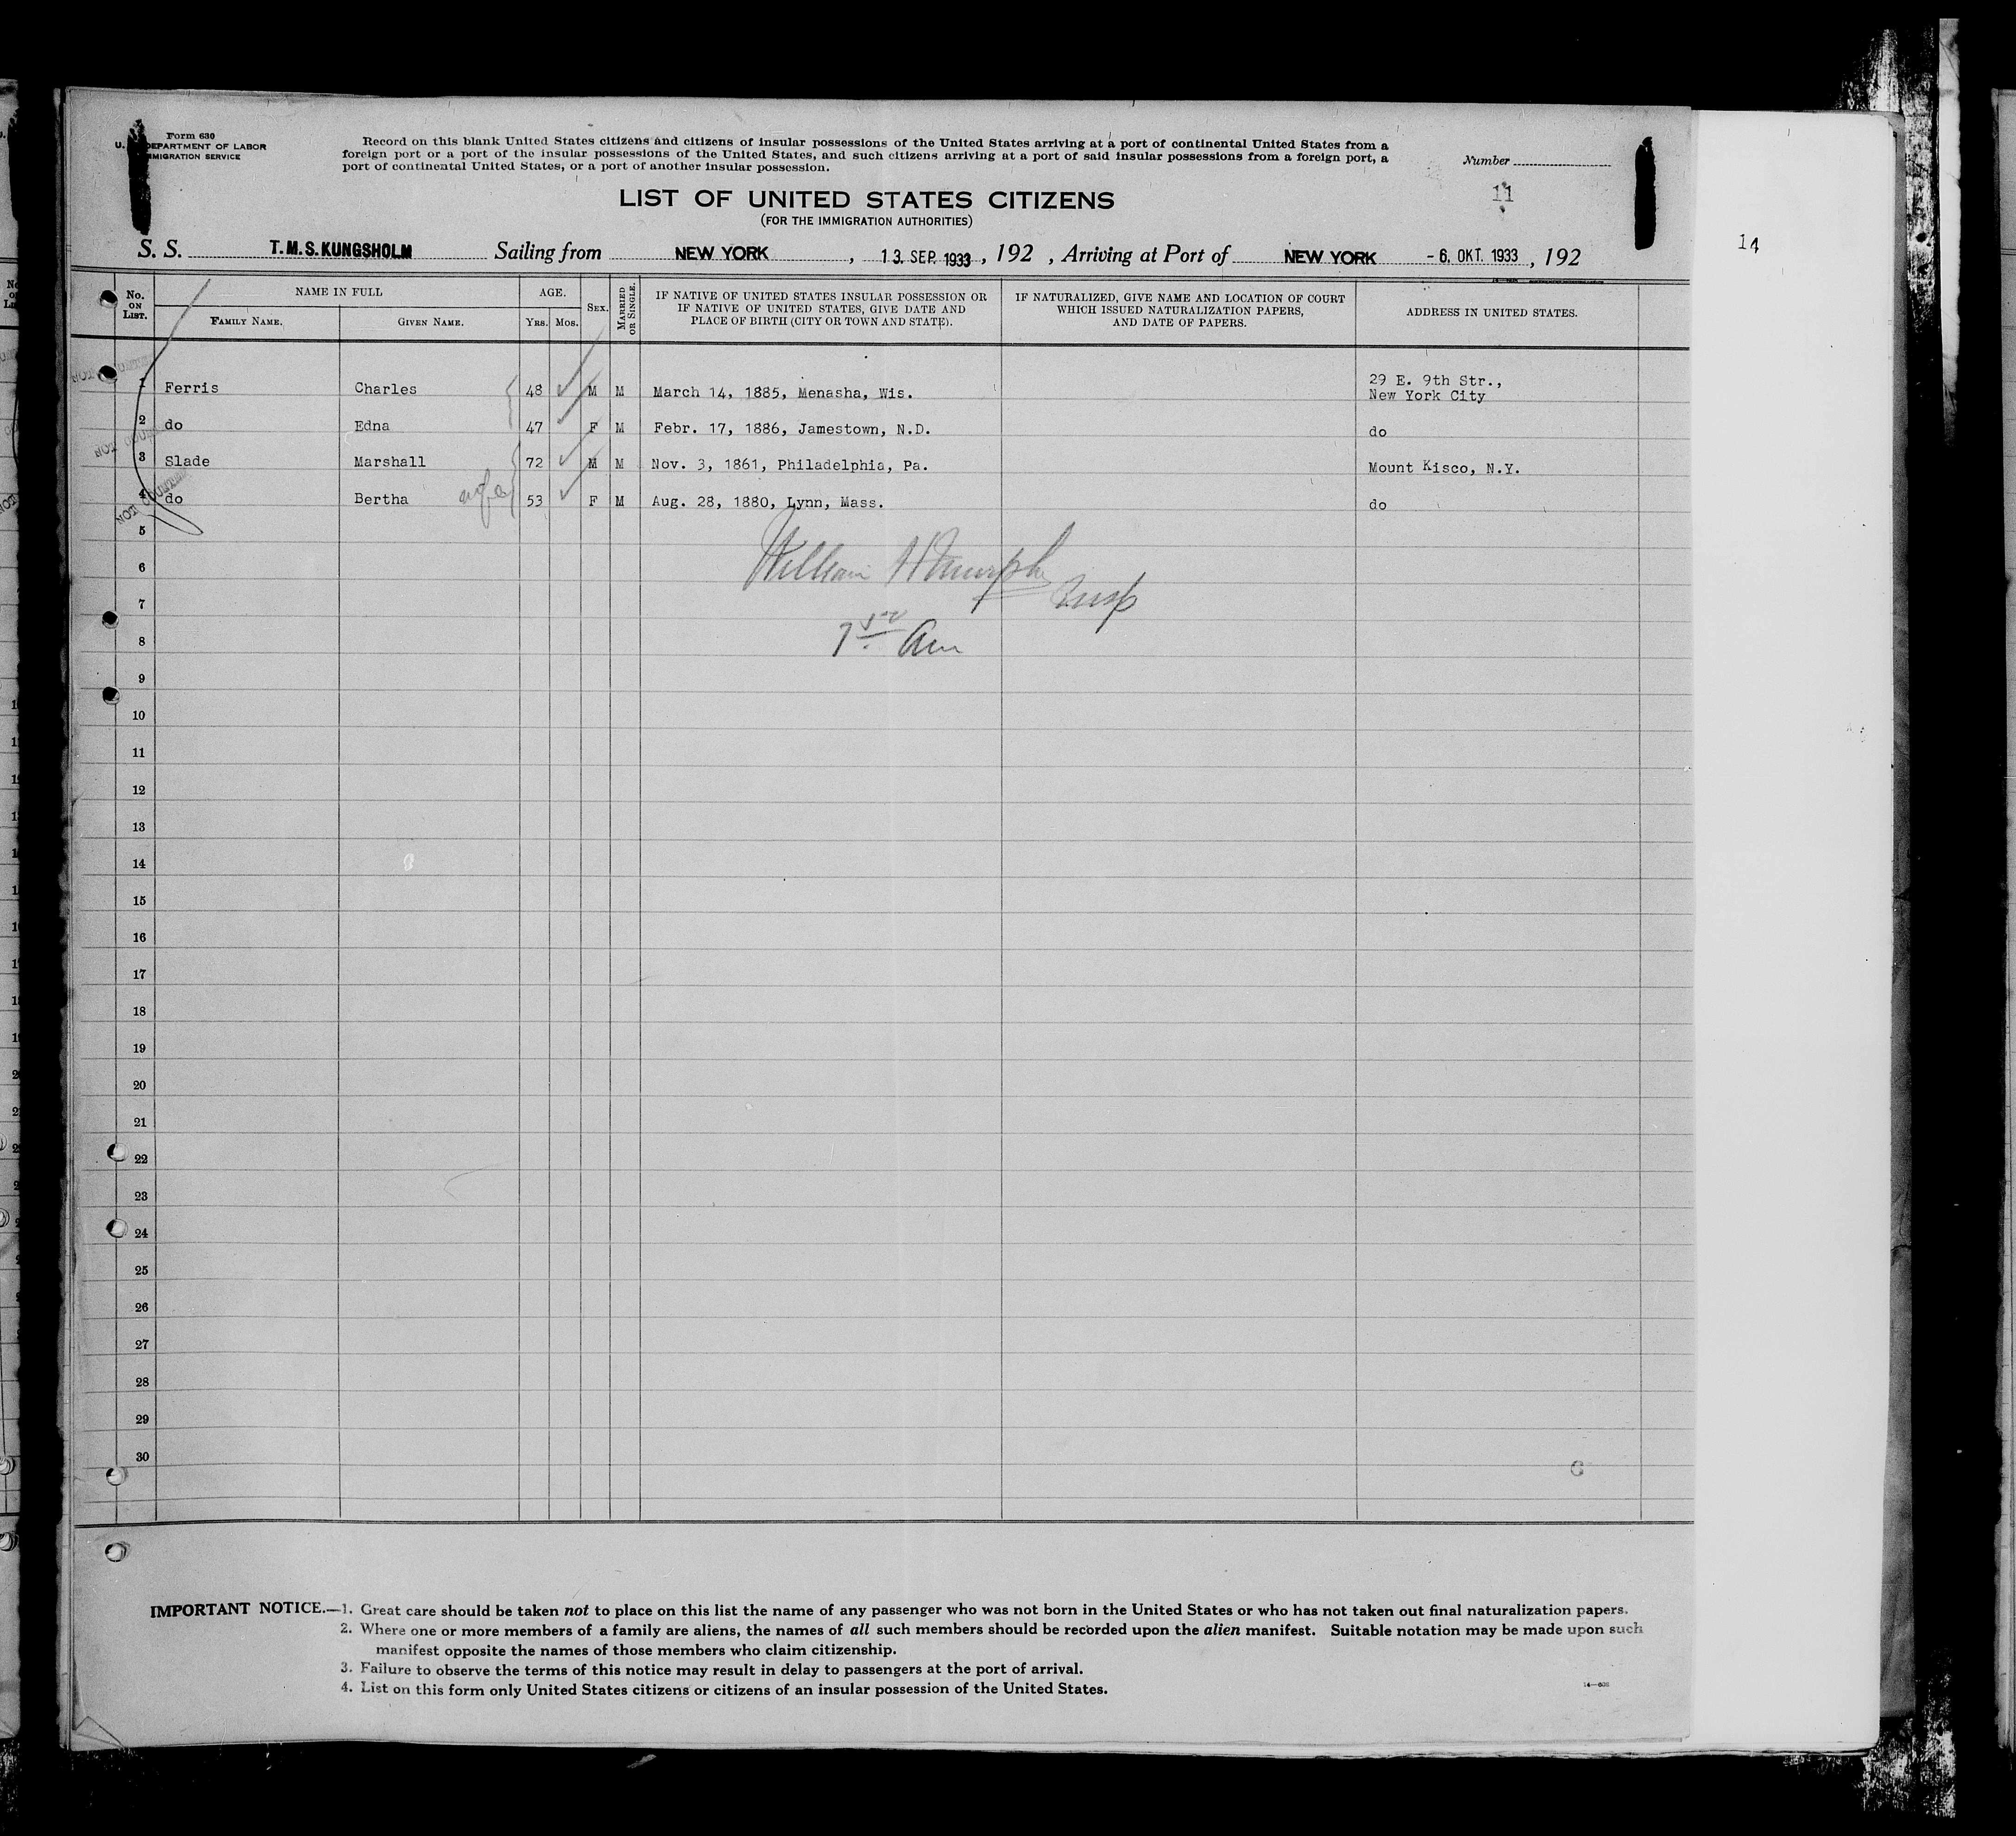 Form 630
U. DEPARTMENT OF LABOR
IMMIGRATION SERVICE
Record on this blank United States citizens and citizens of insular possessions of the United States arriving at a port of continental United States from a
foreign port or a port of the insular possessions of the United States, and such citizens arriving at a port of said insular possessions from a foreign port, a
port of continental United States, or a port of another insular possession.
Number
11
14
LIST OF UNITED STATES CITIZENS
(FOR THE IMMIGRATION AUTHORITIES)
S. S. T.M.S. KUNGSHOLM Sailing from NEW YORK, 13. SEP. 1933, 192 , Arriving at Port of NEW YORK - 6. OKT. 1933, 192
No. ON LIST. NAME IN FULL FAMILY NAME. GIVEN NAME. AGE. YRS. MOS. SEX. MARRIED OR SINGLE. IF NATIVE OF UNITED STATES INSULAR POSSESSION OR IF NATIVE OF UNITED STATES, GIVE DATE AND PLACE OF BIRTH (CITY OR TOWN AND STATE). IF NATURALIZED, GIVE NAME AND LOCATION OF COURT WHICH ISSUED NATURALIZATION PAPERS, AND DATE OF PAPERS. ADDRESS IN UNITED STATES.
1 Ferris Charles 48 M M March 14, 1885, Menasha, Wis. 29 E. 9th Str., New York City
2 do Edna 47 F M Febr. 17, 1886, Jamestown, N.D. do
3 Slade Marshall 72 M M Nov. 3, 1861, Philadelphia, Pa. Mount Kisco, N.Y.
4 do Bertha wife 53 F M Aug. 28, 1880, Lynn, Mass. do
NOT COUNTED
5
6 William H Murphy
7 Insp
8 Am
9
10
11
12
13
14
15
16
17
18
19
20
21
22
23
24
25
26
27
28
29
30
C
IMPORTANT NOTICE.—1. Great care should be taken not to place on this list the name of any passenger who was not born in the United States or who has not taken out final naturalization papers.
2. Where one or more members of a family are aliens, the names of all such members should be recorded upon the alien manifest. Suitable notation may be made upon such
manifest opposite the names of those members who claim citizenship.
3. Failure to observe the terms of this notice may result in delay to passengers at the port of arrival.
4. List on this form only United States citizens or citizens of an insular possession of the United States.